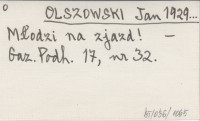 o
OLSZOWSKI Jan 1929...
Młodzi na zjazd! –
Gaz. Podh. 17, nr 32.